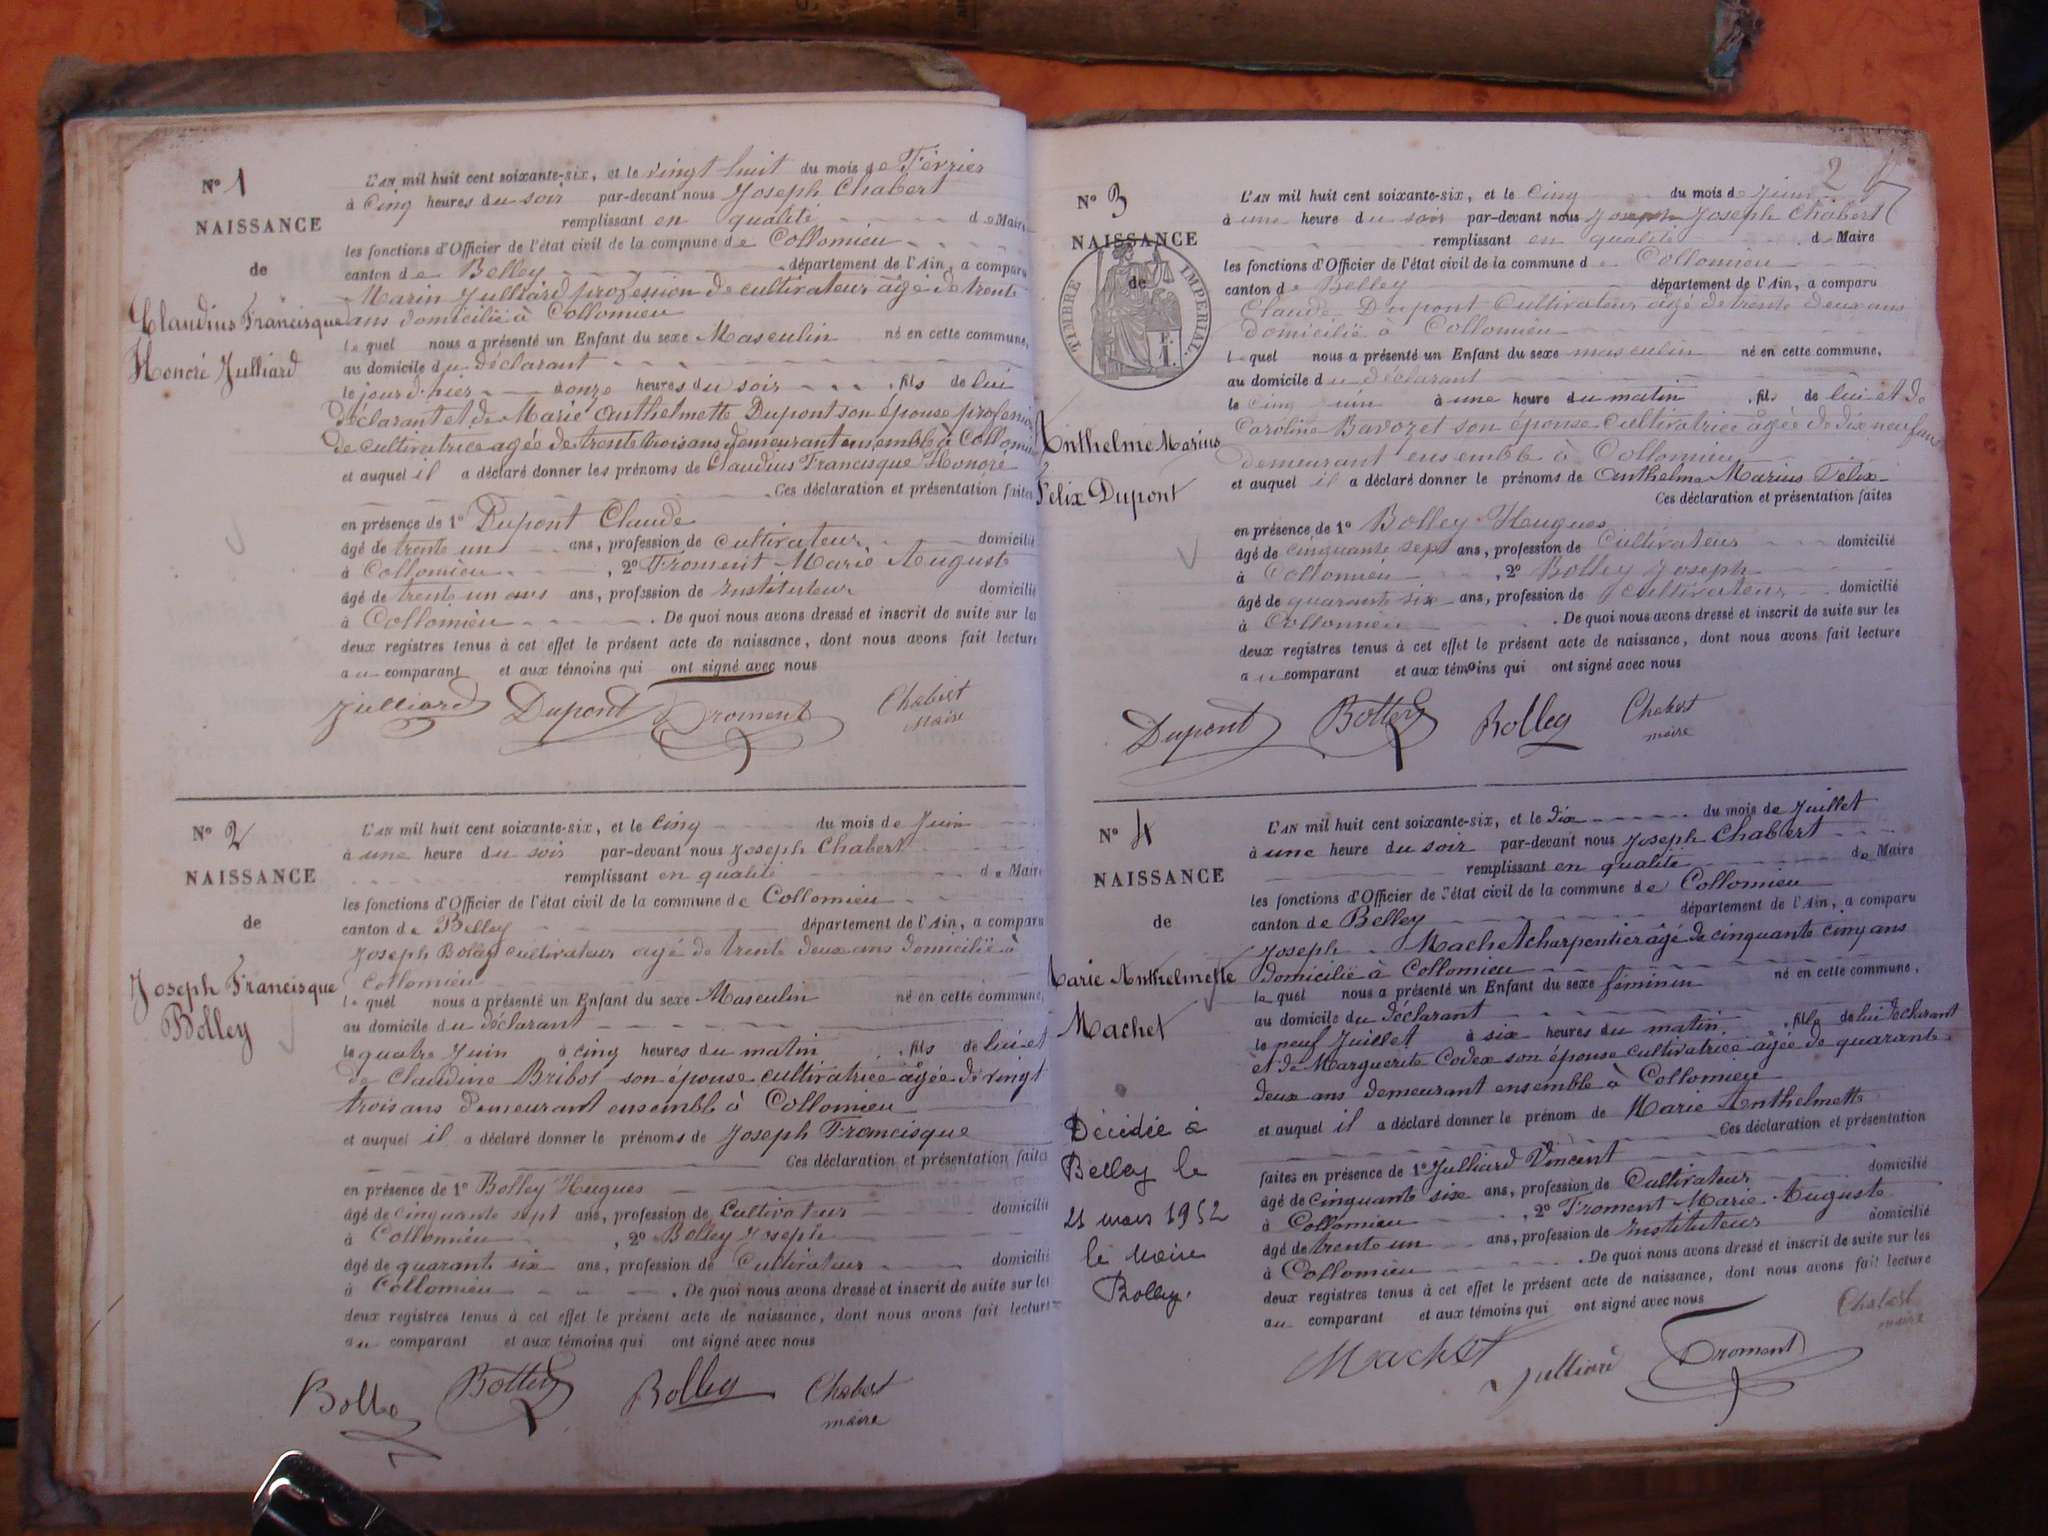 N° 1
NAISSANCE
de
Claudius Francisque
Honoré Julliard
L'AN mil huit cent soixante-six, et le vingt huit du mois de Février
à cinq heures du soir par-devant nous Joseph Chabert
remplissant en qualité de Maire
les fonctions d'Officier de l'état civil de la commune de Collomieu
canton de Belley département de l'Ain, a comparu
Marin Julliard profession de cultivateur âgé de trente
ans domicilié à Collomieu
lequel nous a présenté un Enfant du sexe Masculin né en cette commune,
au domicile du déclarant
le jour d'hier à onze heures du soir fils de lui
déclarant et de Marie Anthelmette Dupont son épouse profession
de cultivatrice agée de trente trois ans demeurant ensemble à Collomieu
et auquel il a déclaré donner les prénoms de Claudius Francisque Honoré
Ces déclaration et présentation faites
en présence de 1° Dupont Claude
âgé de trente un ans, profession de cultivateur domicilié
à Collomieu, 2° Froment Marie Auguste
âgé de trente un ans ans, profession de Instituteur domicilié
à Collomieu. De quoi nous avons dressé et inscrit de suite sur les
deux registres tenus à cet effet le présent acte de naissance, dont nous avons fait lecture
au comparant et aux témoins qui ont signé avec nous
Julliard Dupont Froment Chabert
maire
N° 2
NAISSANCE
de
Joseph Francisque
Bolley
L'AN mil huit cent soixante-six, et le cinq du mois de Juin
à une heure du soir par-devant nous Joseph Chabert
remplissant en qualité de Maire
les fonctions d'Officier de l'état civil de la commune de Collomieu
canton de Belley département de l'Ain, a comparu
Joseph Bolley cultivateur agé de trente deux ans domicilié à
Collomieu
lequel nous a présenté un Enfant du sexe Masculin né en cette commune,
au domicile du déclarant
le quatre Juin à cinq heures du matin, fils de lui et
de Claudine Bribot son épouse cultivatrice âgée de vingt
trois ans demeurant ensemble à Collomieu
et auquel il a déclaré donner le prénoms de Joseph Francisque
Ces déclaration et présentation faites
en présence de 1° Bolley Hugues
âgé de cinquante sept ans, profession de Cultivateur domicilié
à Collomieu, 2° Bolley Joseph
âgé de quarante six ans, profession de Cultivateur domicilié
à Collomieu. De quoi nous avons dressé et inscrit de suite sur les
deux registres tenus à cet effet le présent acte de naissance, dont nous avons fait lecture
au comparant et aux témoins qui ont signé avec nous
Bolley Bolley Chabert
maire
2
N° 3
NAISSANCE
de
TIMBRE IMPERIAL
F.
1.
Anthelme Marius
Felix Dupont
L'AN mil huit cent soixante-six, et le cinq du mois de Juin
à une heure du soir par-devant nous Joseph Joseph Chabert
remplissant en qualité de Maire
les fonctions d'Officier de l'état civil de la commune d Collomieu
canton de Belley département de l'Ain, a comparu
Claude Dupont Cultivateur agé de trente deux ans
domicilié à Collomieu
lequel nous a présenté un Enfant du sexe masculin né en cette commune,
au domicile du déclarant
le cinq Juin à une heure du matin, fils de lui et de
Caroline Bavozet son épouse Cultivatrice âgée de dix neuf ans
demeurant ensemble à Collomieu
et auquel il a déclaré donner le prénoms de Anthelme Marius Félix
Ces déclaration et présentation faites
en présence de 1° Bolley Hugues
âgé de cinquante sept ans, profession de Cultivateur domicilié
à Collomieu, 2° Bolley Joseph
âgé de quarante six ans, profession de Cultivateur domicilié
à Collomieu. De quoi nous avons dressé et inscrit de suite sur les
deux registres tenus à cet effet le présent acte de naissance, dont nous avons fait lecture
au comparant et aux témoins qui ont signé avec nous
Dupont Bolley Bolley Chabert
maire
N° 4
NAISSANCE
de
Marie Anthelmette
Machet
Décédée à
Belley le
21 mars 1952
le Maire
Bolley.
L'AN mil huit cent soixante-six, et le dix du mois de Juillet
à une heure du soir par-devant nous Joseph Chabert
remplissant en qualité de Maire
les fonctions d'Officier de l'état civil de la commune de Collomieu
canton de Belley département de l'Ain, a comparu
Joseph Machet charpentier âgé de cinquante cinq ans
domicilié à Collomieu
lequel nous a présenté un Enfant du sexe féminin né en cette commune,
au domicile du déclarant
le neuf Juillet à six heures du matin, fille de lui déclarant
et de Marguerite Codex son épouse cultivatrice agée de quarante
deux ans demeurant ensemble à Collomieu
et auquel il a déclaré donner le prénom de Marie Anthelmette
Ces déclaration et présentation
faites en présence de 1° Julliard Vincent
âgé de cinquante six ans, profession de Cultivateur domicilié
à Collomieu, 2° Froment Marie Auguste
âgé de trente un ans, profession de Instituteur domicilié
à Collomieu. De quoi nous avons dressé et inscrit de suite sur les
deux registres tenus à cet effet le présent acte de naissance, dont nous avons fait lecture
au comparant et aux témoins qui ont signé avec nous
Machet Julliard Froment Chabert
maire